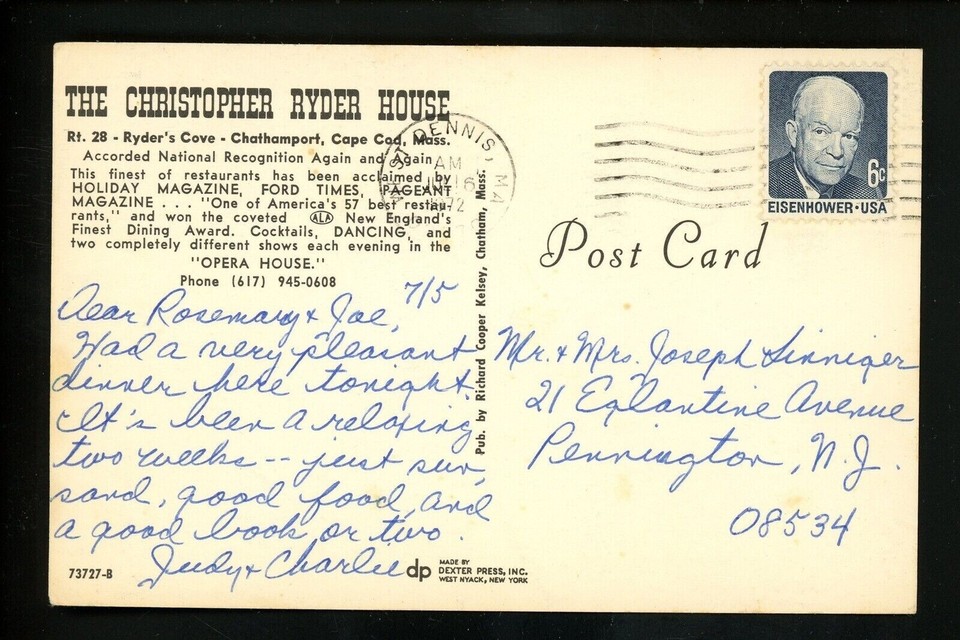 THE CHRISTOPHER RYDER HOUSE
Rt. 28 - Ryder's Cove - Chathamport, Cape Cod, Mass.
Accorded National Recognition Again and Again
This finest of restaurants has been acclaimed by
HOLIDAY MAGAZINE, FORD TIMES, PAGEANT
MAGAZINE . . . "One of America's 57 best restau-
rants," and won the coveted ALA New England's
Finest Dining Award. Cocktails, DANCING, and
two completely different shows each evening in the
"OPERA HOUSE."
Phone (617) 945-0608
7/5
Dear Rosemary & Joe,
Had a very pleasant
dinner here tonight.
It's been a relaxing
two weeks -- just sun,
sand, good food and
a good book or two.
Judy & Charlie
73727-B
dp
MADE BY
DEXTER PRESS, INC.
WEST NYACK, NEW YORK
Pub. by Richard Cooper Kelsey, Chatham, Mass.
DENNIS, MA
AM
1972
6c
EISENHOWER·USA
Post Card
Mr. & Mrs. Joseph Sinniger
21 Eglantine Avenue
Pennington, N.J.
08534